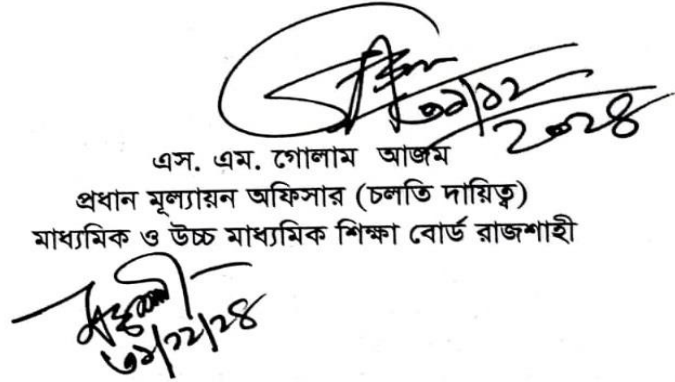 ৩১/১২
২০২৪
এস. এম. গোলাম আজম
প্রধান মূল্যায়ন অফিসার (চলতি দায়িত্ব)
মাধ্যমিক ও উচ্চ মাধ্যমিক শিক্ষা বোর্ড রাজশাহী
৩১/১২/২৪